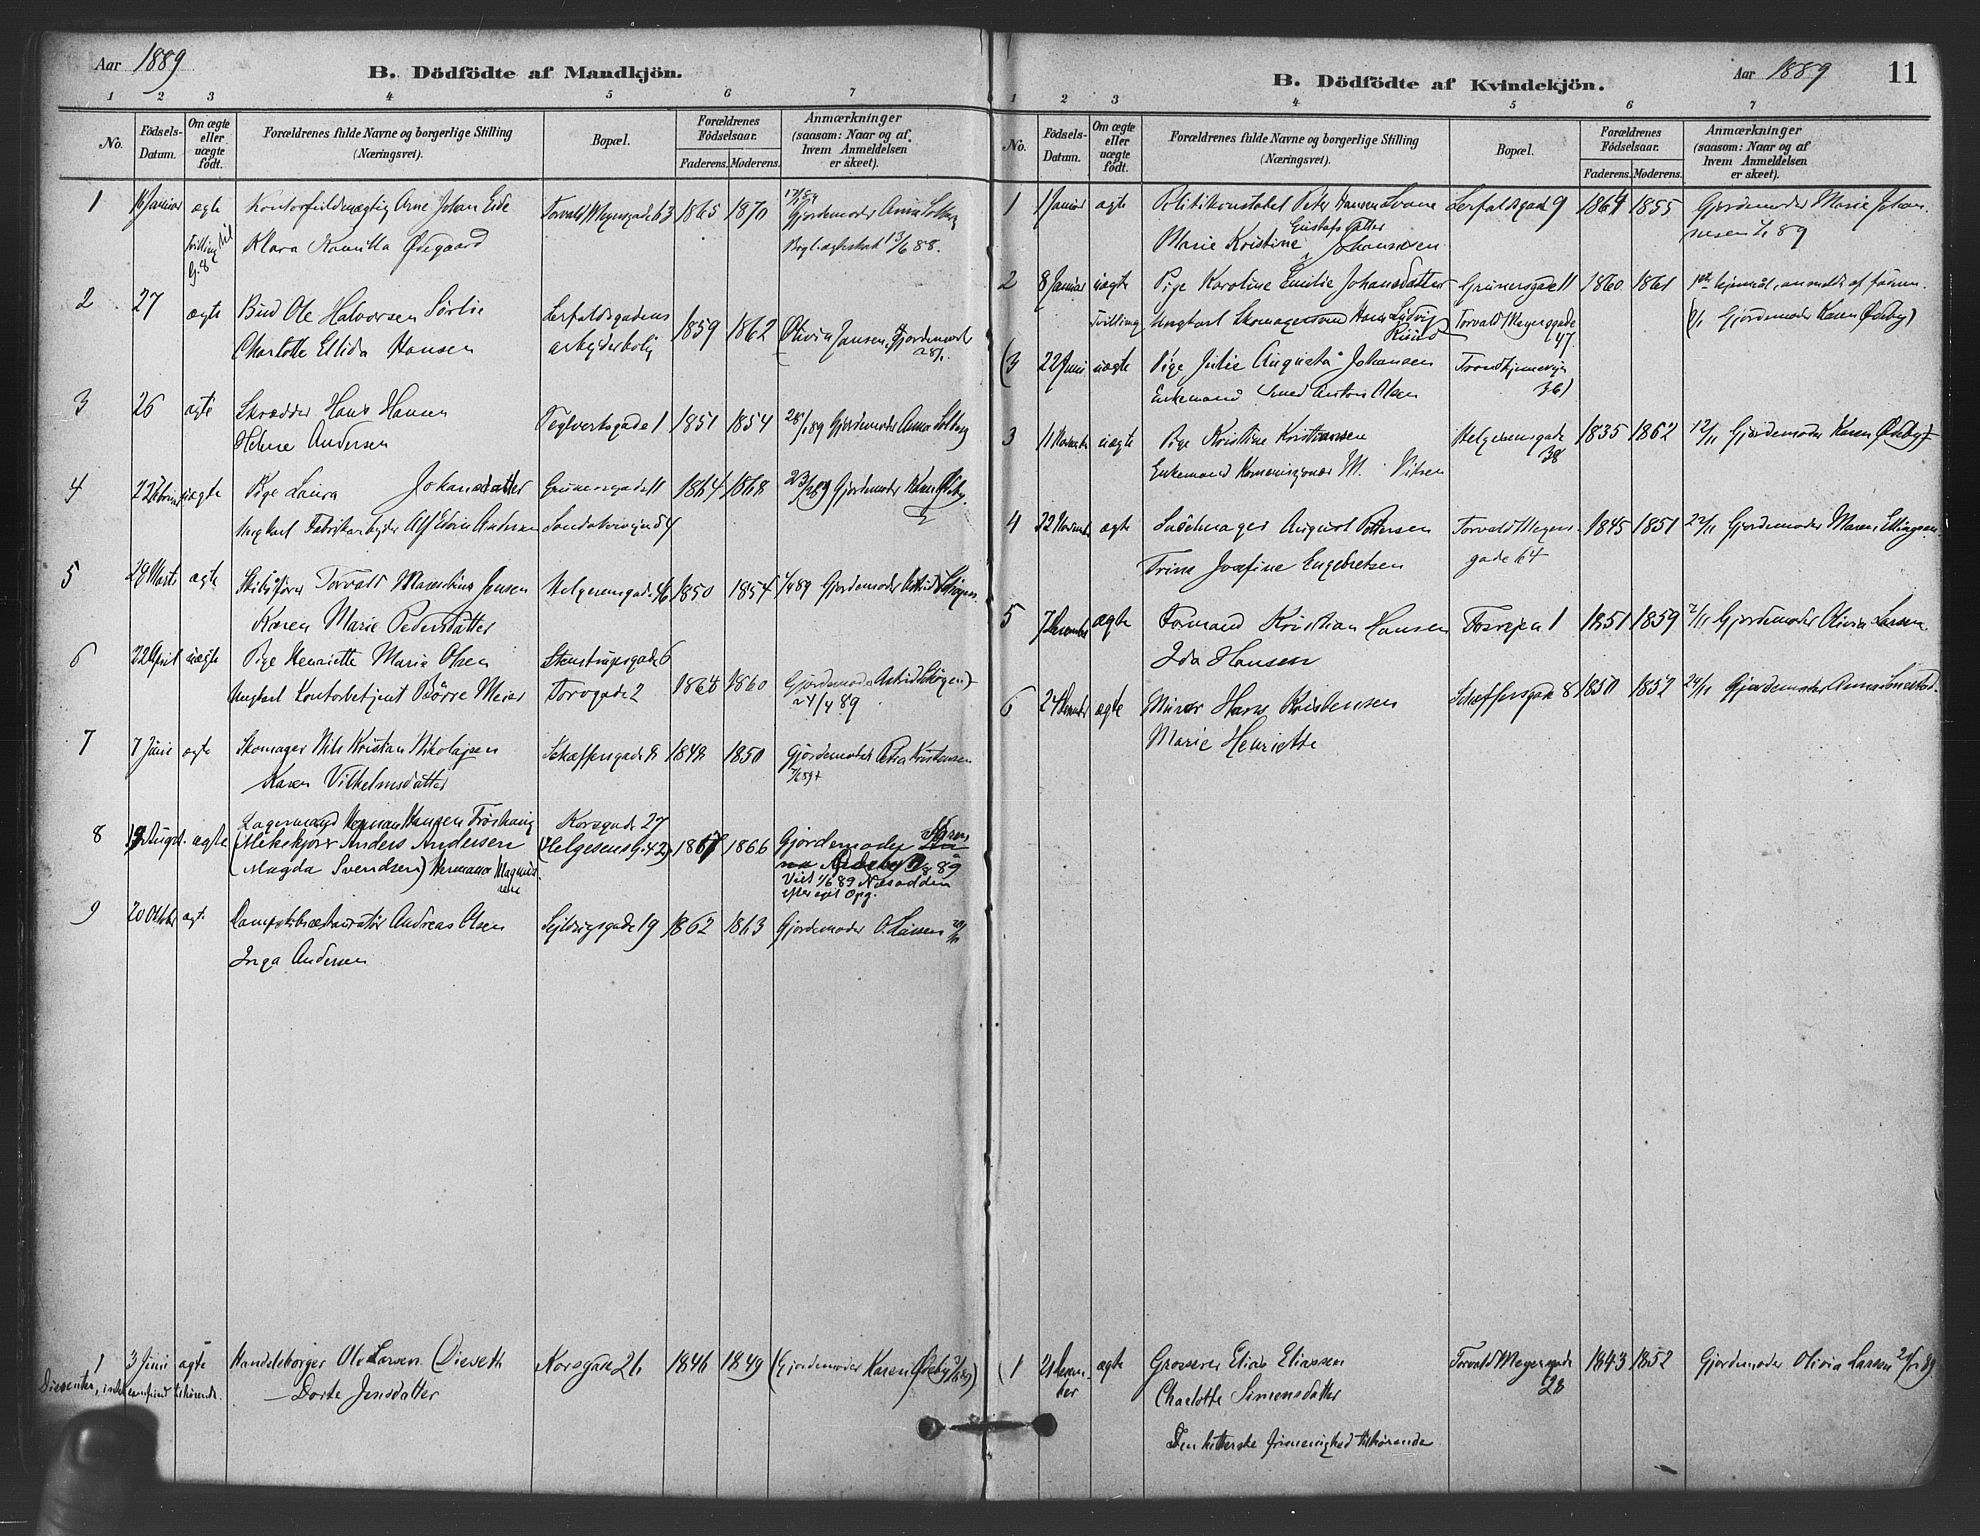 Aar 1889
B. Dödfödte af Mandkjön.
1 2 3 4 5 6 7
No.
Födsels-Datum.
Om ægte eller uægte födt.
Forældrenes fulde Navne og borgerlige Stilling (Næringsvei).
Bopæl.
Forældrenes Födselsaar.
Faderens. Moderens.
Anmærkninger (saasom: Naar og af hvem Anmeldelsen er skeet).
1 16 Januar ægte Kontorfuldmægtig Arne Johan Eide Torvald Meyersgade 63 1865 1870 Gjordemoder Anna Solberg
Tvilling til G. 8 Klara Kamilla Ødegaard 13/6 88.
2 27 ægte Bud Ole Halvorsen Sørlie Lerfaldsgadens 1859 1862 Olivia Jansen, Gjordemoder
Charlotte Ellida Hansen arbeiderbolig
3 26 ægte Skrædder Hans Hansen Teglverksgade 1 1851 1854 28/1 89 Gjordemoder Anna Solberg
Helene Andersen
4 22 Februar uægte Pige Laura Johansdatter Grünersgade 11 1864 1868 23/2 89 Gjordemoder Karen Øseby
Ungkarl Fabrikarbeider Alf Edvin Andersen Sandakerveien 54
5 28 Marts ægte Skibsfører Torvald Marselius Jensen Helgesensgade 46 1850 1854 1/4 89 Gjordemoder Astrid
Karen Marie Pedersdatter
6 22 April uægte Pige Henriette Marie Olsen Stenstrupsgade 6 1860 Gjordemoder Astrid
Ungkarl Kontorbetjent Børre Meier Torvgade 2 24/4 89
7 7 Juni ægte Skomager Nils Kristian Nikolajsen Schæffersgade 8 1848 1850 Gjordemoder Petra Kristensen
Karen Vilhelmsdatter
8 August ægte Lagermand Herman Hansen Korsgade 27
(Melkekjører Anders Andersen (Helgesens G. 42) 1867 1866 Gjordemoder Karen
Magda Svendsen) Hermana Øseby 89
Viet 1/6 89 Næsodden
efter egt Opg.
9 20 Oktober ægte Dampskibsrestauratör Andreas Olsen Seilduksgade 19 1862 1863 Gjordemoder O. Larsen
Inga Andersen
1 3 Juni ægte Handelsborger Ole Larsen (Dieseth Korsgade 26 1846 1849 (Gjordemoder Karen Øseby
Dissenter, tilhörende. Dorte Jensdatter
Aar 1889 11
B. Dödfödte af Kvindekjön.
1 2 3 4 5 6 7
No.
Födsels-Datum.
Om ægte eller uægte födt.
Forældrenes fulde Navne og borgerlige Stilling (Næringsvei).
Bopæl.
Forældrenes Födselsaar.
Faderens. Moderens.
Anmærkninger (saasom: Naar og af hvem Anmeldelsen er skeet).
1 1 Januar ægte Politikonstabel Peter Hansen Svane Lerfaldsgade 9 1864 1855 Gjordemoder Marie Johan-
Marie Kristine Gustafs Datter Johannesen nesen 89
2 8 Januar uægte Pige Karoline Emilie Johansdatter Grünersgade 11 1860 1861 anmeldt af faren
Tvilling Ungkarl Skomagersvend Hans Ludvig Torvald Meyersgade 47 Gjordemoder Karen Øseby)
(3 22 Juni uægte Pige Julie Augusta Johansen Trondhjemsveien 36)
Enkemand Smed Anton Olsen
3 11 November uægte Pige Kristine Kristiansen Helgesensgade 38 1835 1862 12/11 Gjordemoder Karen Øseby
Enkemand Kommissionær M. Nilsen
4 22 November ægte Sadelmager August Pettersen Torvald Meyers- 1845 1851 22/11 Gjordemoder Maren Ellingsen
Trine Josefine Engebretsen gade 64
5 7 December ægte Formand Kristian Hansen Fosvejen 1 1851 1859 Gjordemoder Olivia Larsen
Ida Hansen
6 24 December ægte Murer Hans Kristensen Schæffersgade 8 1850 1852 Gjordemoder Anna
Marie Henriette
(1 21 December ægte Grosserer Elias Eliassen Torvald Meyersgade 28 1843 1852 Gjordemoder Olivia Larsen
Charlotte Simensdatter
Den lutherske frimenighed tilhörende